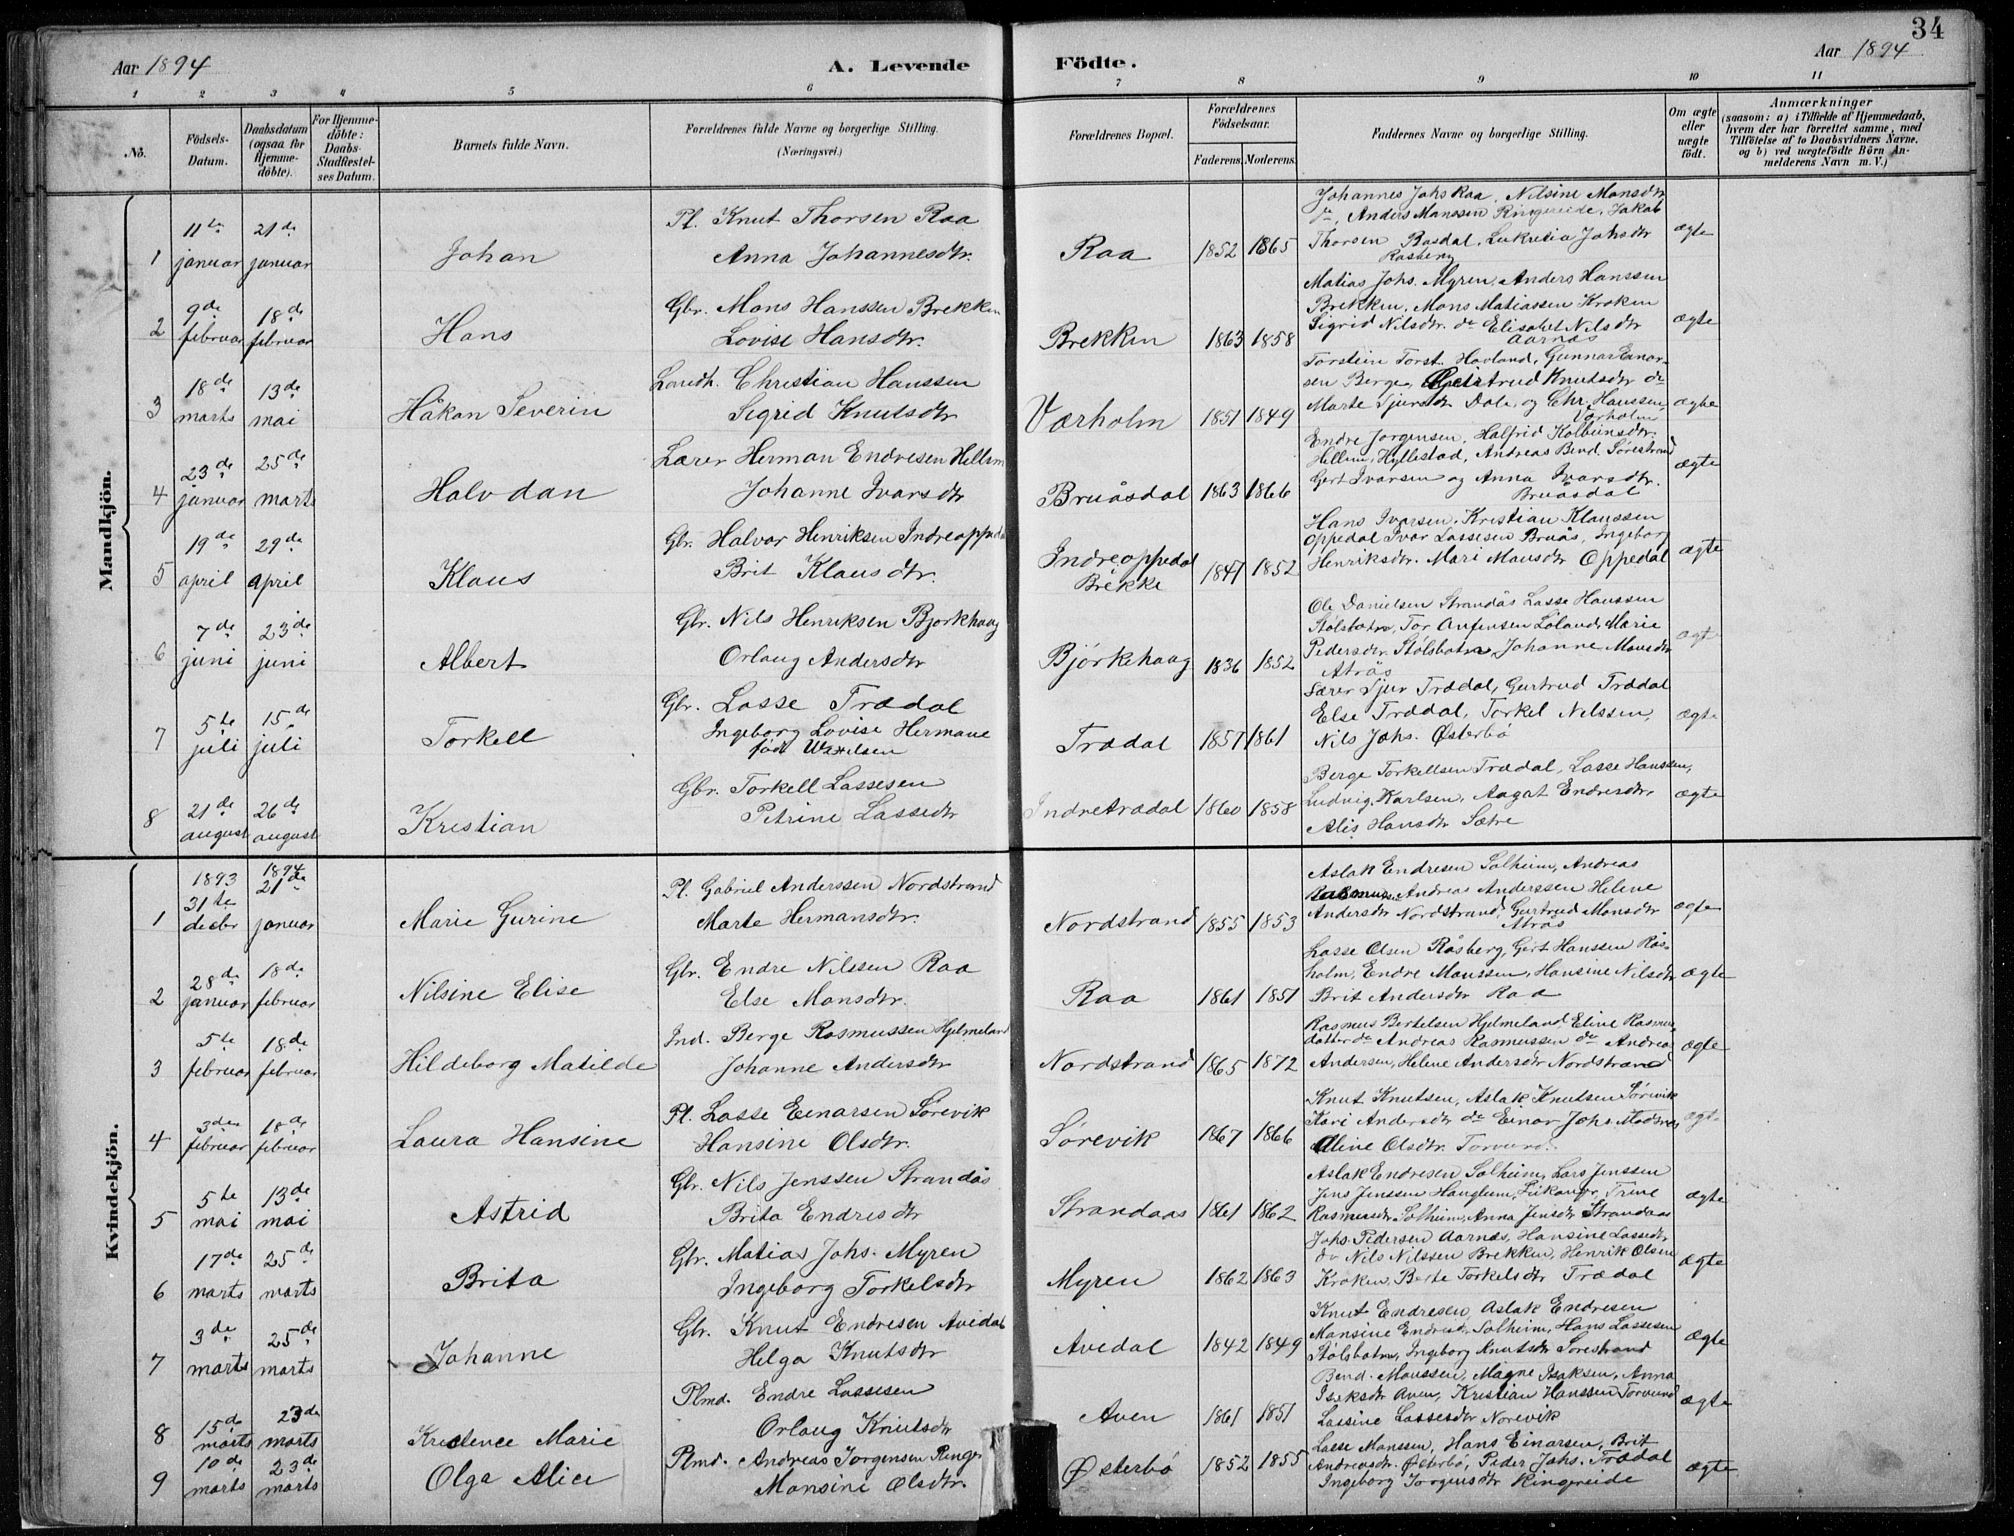 34
Aar 1894
A. Levende Födte.
Aar 1894
1 2 3 4 5 6 7 8 9 10 11
No.
Födsels-Datum.
Daabsdatum (ogsaa for Hjemmedöbte).
For Hjemmedöbte: Daabs-Stadfæstelses Datum.
Barnets fulde Navn.
Forældrenes fulde Navne og borgerlige Stilling. (Næringsvei.)
Forældrenes Bopæl.
Forældrenes Födselsaar.
Faderens. Moderens.
Faddernes Navne og borgerlige Stilling.
Om ægte eller uægte födt.
Anmærkninger (saasom: a) i Tilfælde af Hjemmedaab, hvem der har forrettet samme, med Tilföielse af to Daabsvidners Navne, og b) ved uægtefödte Börn Anmelderens Navn m. V.)
Mandkjön.
1 11te januar 21de januar Johan Pl. Knut Thorsen Raa Anna Johannesdtr. Raa 1852 1865 Johannes Johs Raa, Nilsine Monsdtr do, Anders Monssen Ringereide, Jakob Thorsen Basdal, Lukretia Johsdtr Rasberg ægte
2 9de februar 18de februar Hans Gbr. Mons Hanssen Brekken Lovise Hansdtr. Brekken 1863 1858 Matias Johs. Myren, Anders Hanssen Brekken, Mons Matiassen Kroken Sigrid Nilsdtr. do Elisabet Nilsdtr Aarnæs ægte
3 18de marts 13de mai Håkon Severin Landh. Christian Hanssen Sigrid Knutsdtr Værholm 1851 1849 Torstein Torst. Hovland, Gunnar Einarsen Berge, Gertrud Knutsdtr do Marte Sjursdtr Dale, og Chr. Hanssen, Værholm ægte
4 23de januar 25de marts Halvdan Lærer Herman Endresen Hellem Johanne Ivarsdtr Bruåsdal 1863 1866 Endre Jorgensen, Halfrid Kolbeinsdtr. Hellem, Hyllestad, Andreas Bend. Sørestrand Gert Ivarsen og Anna Ivarsdtr. Bruåsdal ægte
5 19de april 29de april Klaus Gbr. Halvor Henriksen Indreoppedal Brit Klausdtr. Indreoppedal Brekke 1847 1852 Hans Ivarsen, Kristian Klaussen Oppedal Ivar Lassesen Bruås, Ingeborg Henriksdtr. Mari Monsdtr Oppedal ægte
6 7de juni 23de juni Albert Gbr. Nils Henriksen Bjorkhaug Orlaug Andersdtr Bjørkehaug 1836 1852 Ole Danielsen Strandås Lasse Hanssen Stølsbotn, Tor Anfinsen Løland, Marie Pedersdtr Stølsbotn, Johanne Monsdtr Atrås ægte
7 5te juli 15de juli Torkell Gbr. Lasse Trædal Ingeborg Lovise Hermane født Trædal 1857 1861 Lærer Sjur Trædal, Gurtrud Trædal Else Trædal, Torkel Nilssen, Nils Johs. Østerbø ægte
8 21de august 26de august Kristian Gbr. Torkell Lassesen Petrine Lassedtr Indretrædal 1860 1858 Berge Torkellsen Trædal, Lasse Hanssen, Ludvig Karlsen, Aagat Endresdtr, Alis Hansdtr Sætre ægte
Kvindekjön.
1 1893 31te decbr 1894 21de januar Marie Gurine Pl. Gabriel Anderssen Nordstrand Marte Hermansdtr. Nordstrand 1855 1853 Aslak Endresen Solheim, Andreas Rasmussen, Andreas Anderssen Helene Andersdtr Nordstrand, Gurtrud Monsdtr Atrås ægte
2 28de januar 18de februar Nilsine Elise Gbr. Endre Nilssen Raa Else Monsdtr. Raa 1861 1851 Lasse Olsen Råsberg, Gert Hanssen Råsholm, Endre Monssen, Hansine Nilsdtr Brit Andersdtr Raa ægte
3 5te februar 18de februar Hildeborg Matilde Ind. Berge Rasmussen Hjelmeland Johanne Andersdtr Nordstrand 1865 1872 Rasmus Bertelsen Hjelmeland Eline Rasmusdatter do Andreas Rasmussen do Andreas Andersen, Helene Andersdtr Nordstrand ægte
4 3die februar 18de februar Laura Hansine Pl. Lasse Einarsen Sørevik Hansine Olsdtr. Sørevik 1867 1866 Knut Knutsen, Aslak Knutsen Sørevik Kari Andersdtr do Einar Johs. Aline Olsdtr. Torvund ægte
5 5te mai 13de mai Astrid Gbr. Nils Jenssen Strandås Brita Endresdtr Strandaas 1861 1862 Aslak Endresen Solheim, Lars Jenssen Jens Jenssen Hauglum, Leikanger, Trine Rasmusdtr Solheim, Anna Jensdtr Strandaas ægte
6 17de marts 25de marts Brita Gbr. Matias Johs. Myren Ingeborg Torkelsdtr Myren 1862 1863 Johs. Pedersen Aarnæs, Hansine Lassedtr do Nils Nilssen Brekken, Henrik Olsen Kroken, Berte Torkelsdtr Trædal ægte
7 3de marts 25de marts Johanne Gbr. Knut Endresen Avedal Helga Knutsdtr Avedal 1842 1849 Knut Endresen, Aslak Endresen Monsine Endresdtr Solheim, Hans Lassesen Stølsbotn, Ingeborg Knutsdtr Sørestrand ægte
8 15de marts 23de marts Kredence Marie Plmd. Endre Lassesen Orlaug Knutsdtr Aven 1861 1851 Bend. Monssen, Magne Isaksen, Anna Isaksdtr Aven, Kristian Hanssen Torvund Lassine Lassesdtr Norevik ægte
9 10de marts 23de marts Olga Alice Plmd. Andreas Jorgensen Ringer Monsine Olsdtr. Østerbø 1852 1855 Lasse Monssen, Hans Einarsen, Brit Andreasdtr. Østerbø, Peder Johs. Trædal Ingeborg Jorgensdtr Ringereide ægte